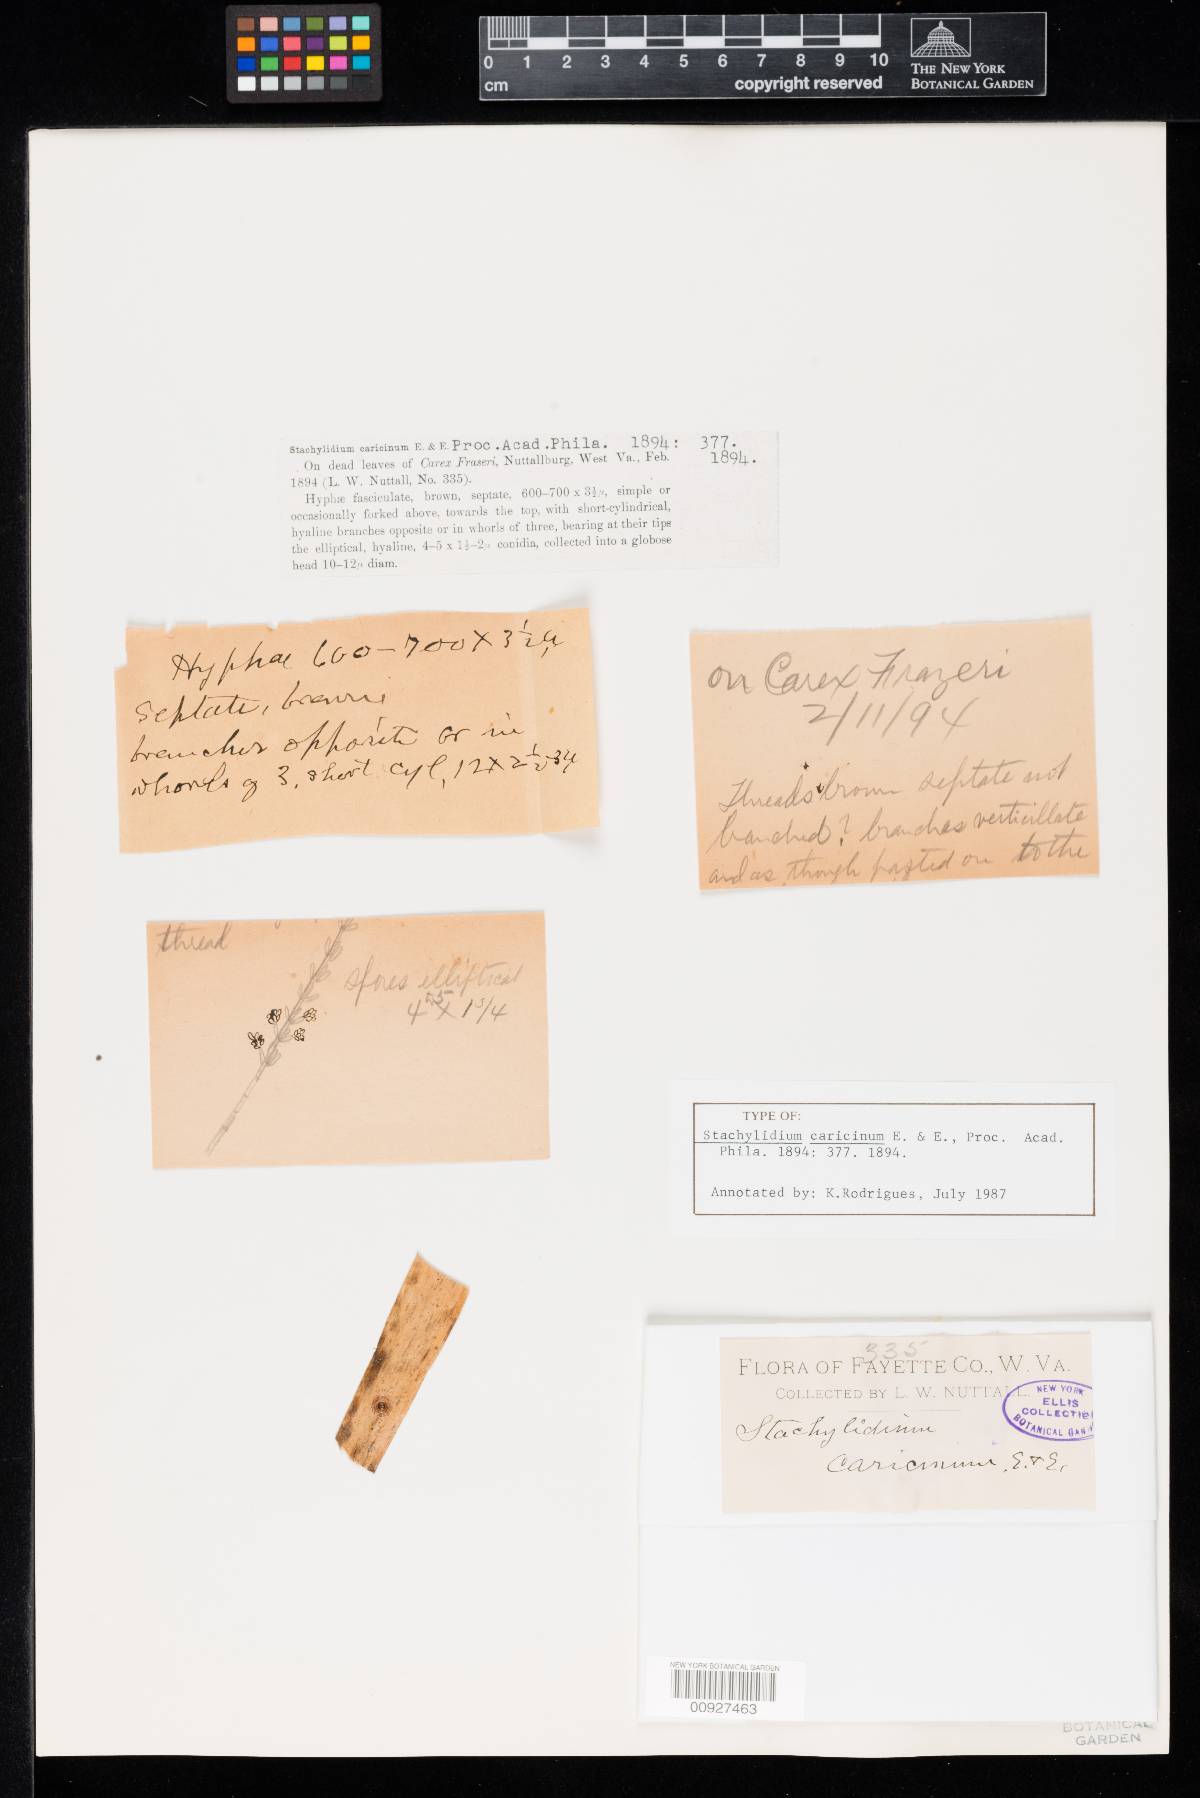 0 1 2 3 4 5 6 7 8 9 10
cm copyright reserved
THE NEW YORK
BOTANICAL GARDEN
Stachylidium caricinum E. & E. Proc.Acad.Phila. 1894: 377.
1894.
On dead leaves of Carex Fraseri, Nuttallburg, West Va., Feb.
1894 (L. W. Nuttall, No. 335).
Hyphæ fasciculate, brown, septate, 600–700 x 3½µ, simple or
occasionally forked above, towards the top, with short-cylindrical,
hyaline branches opposite or in whorls of three, bearing at their tips
the elliptical, hyaline, 4–5 x 1½–2µ conidia, collected into a globose
head 10–12µ diam.
Hyphae 600–700 X 3½µ
septate, brown;
branches opposite or in
whorls of 3, short cyl, 12 X 2½-3µ
on Carex Frazeri
2/11/94
Threads brown septate not
branched? branches verticillate
and as though pasted on to the
thread
spores elliptical
4-5 x 1 3/4
TYPE OF:
Stachylidium caricinum E. & E., Proc. Acad.
Phila. 1894: 377. 1894.
Annotated by: K.Rodrigues, July 1987
335
FLORA OF FAYETTE CO., W. VA.
COLLECTED BY L. W. NUTTALL.
NEW YORK
ELLIS
COLLECTION
BOTANICAL GARDEN
Stachylidium
caricinum, E. & E.
NEW YORK BOTANICAL GARDEN
00927463
BOTANICAL
GARDEN